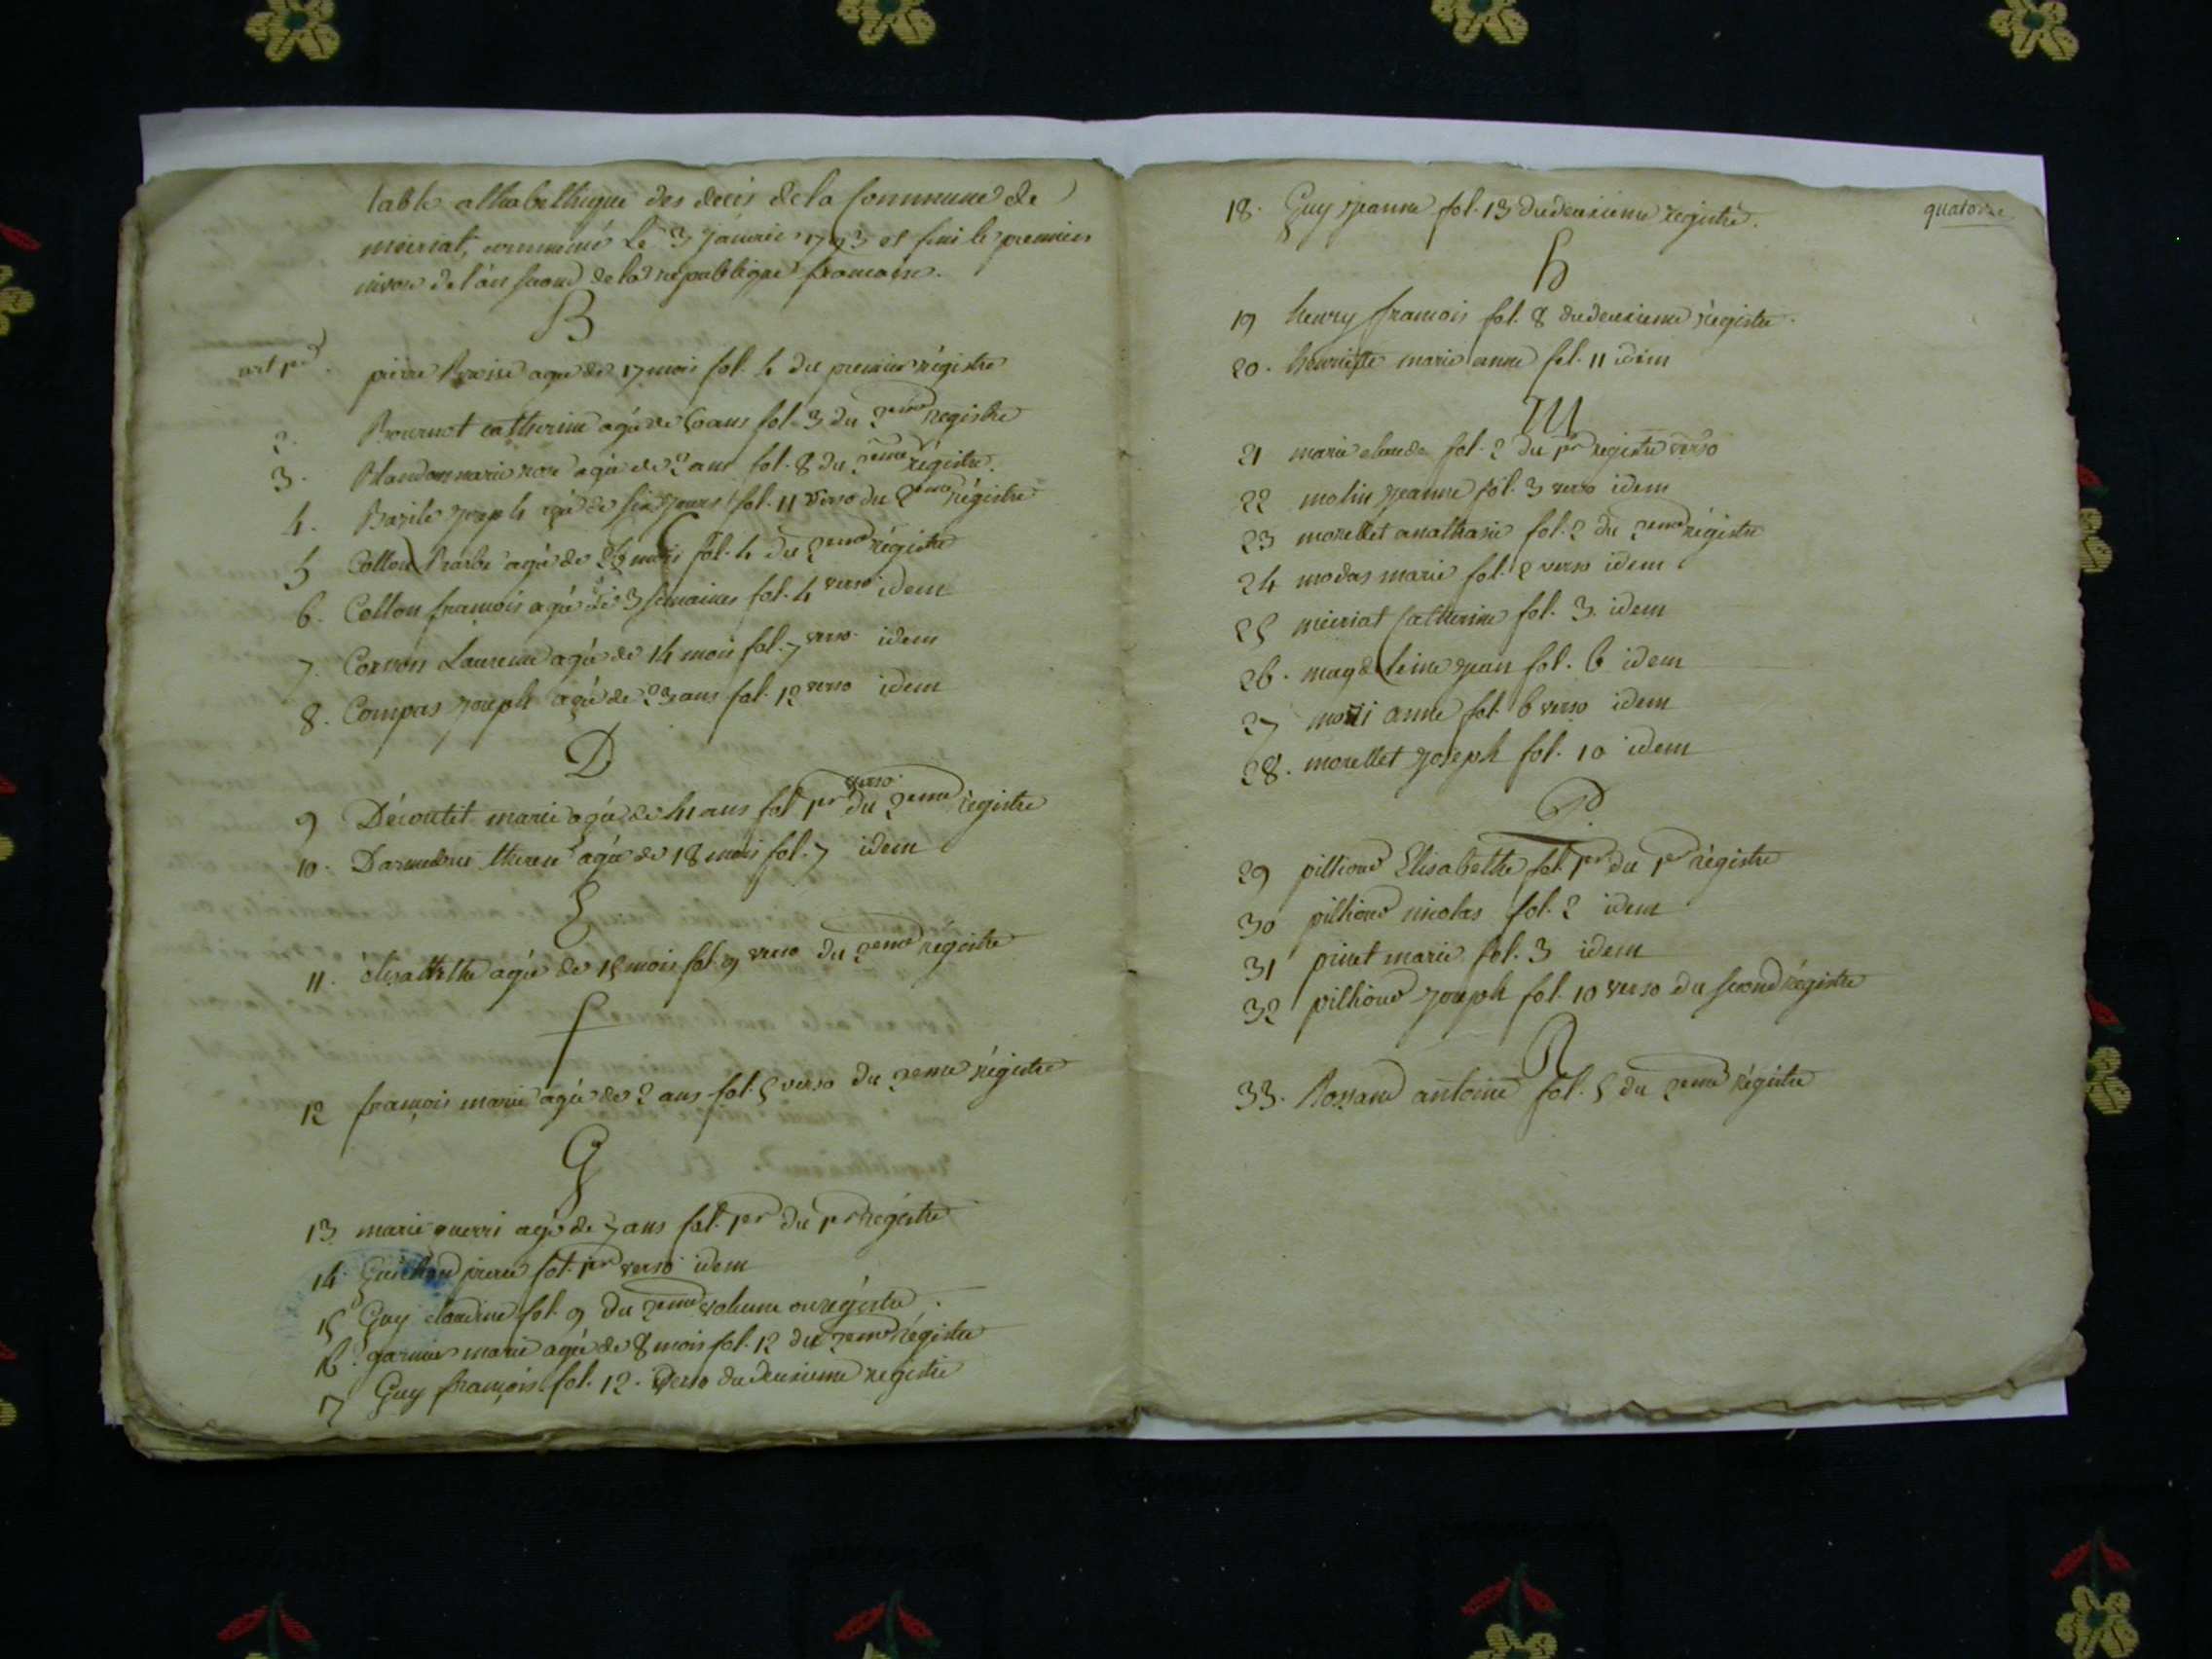 table alphabethique des decés de la Commune de
meiriat, commencé le 3 janvier 1793 et fini le premier
nivose de l'an second de la republique francoise.
B
art pr. pierre Broisse agé de 17 mois fol. 4 du premier régistre
2. Bournot catherine agée de 60 ans fol. 3 du 2eme registre
3. Blandon marie rose agée de 2 ans fol. 8 du 2eme régistre.
4. Bazile joseph agé de six jours fol. 11 verso du 2eme régistre
C
5 Collon Barbe agée de mois fol. 4 du 2eme régistre
6. Collon francois agé de 3 semaines fol. 4 verso idem
7. Corson Laurence agée de 14 mois fol. 7 verso idem
8. Compas joseph agé de 23 ans fol. 12 verso idem
D
9 Découtit marie agée de 41 ans fol pr verso du 2eme régistre
10. therese agée de 18 mois fol. 7 idem
E
11. elisabethe agée de 15 mois fol. 9 verso du 2eme registre
f
12 francois marie agée de 2 ans fol. 5 verso du 2eme régistre
G
13 marie guerri agée de 7 ans fol. pr du pr régistre
14. pierre fol. pr verso idem
15 Guy claudine fol. 9 du 2eme volume ou régistre.
16. garnier marie agée de 8 mois fol. 12 du 2eme régistre
17 Guy francois fol. 12. verso du deuxieme registre
quatorze
18. Guy jeanne fol. 13 du deuxieme registre.
h
19 henry francois fol. 8 du deuxieme régistre.
20. henriette marie anne fol. 11 idem
M
21 marie claude fol. 2 du pr registre verso
22 molin jeanne fol. 3 verso idem
23 morellet anathasie fol. 2 du 2eme régistre
24 modas marie fol. 2 verso idem
25 meiriat Catherine fol. 3. idem
26. magdeleine jean fol. 6 idem
27 anne fol. 6 verso idem
28. morellet joseph fol. 10 idem
P.
29 pilliond Elisabethe fol. pr du pr régistre
30 pilliond nicolas fol. 2 idem
31 pinet marie fol. 3 idem
32 pilliond joseph fol. 10 verso du second régistre
R
33. Rossand antoine fol. 5 du 2eme régistre